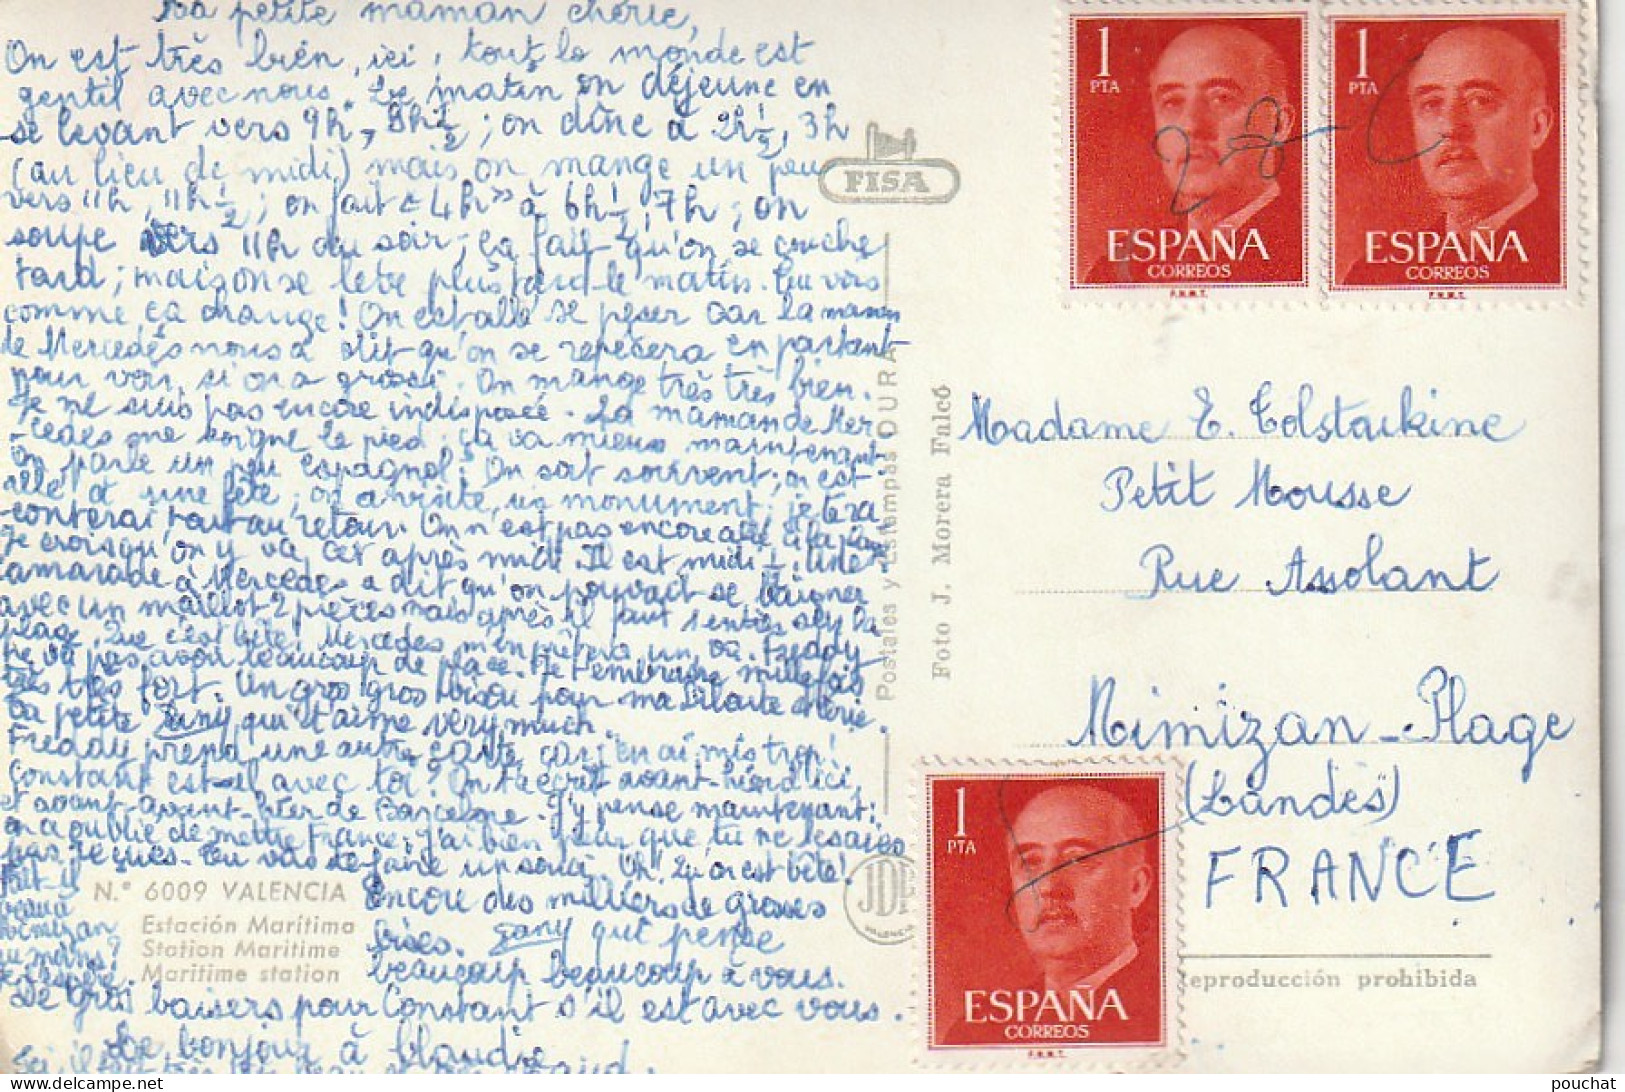 Ma petite maman chérie,
On est très bien, ici, tout le monde est
gentil avec nous. Le matin on déjeune en
se levant vers 9h, 9h 1/2 ; on dîne à 2h 1/2, 3h
(au lieu de midi) mais on mange un peu
vers 11h, 11h 1/2 ; on fait "4h" à 6h 1/2, 7h ; on
soupe vers 11h du soir ; ça fait qu'on se couche
tard ; mais on se lève plus tard le matin. Tu vois
comme ça change ! On est allé se peser car la maman
de Mercedes nous a dit qu'on se repèsera en partant
pour voir, si on a grossi. On mange très très bien.
Je ne suis pas encore indisposée. La maman de Mer-
cedes me soigne le pied, ça va mieux maintenant.
On parle un peu espagnol ! On sort souvent ; on est
allé à une fête, on a visité un monument ; je te ra-
conterai tout au retour. On n'est pas encore allé à la plage
Je crois qu'on y va cet après midi. Il est midi 1/2. Une
camarade à Mercedes a dit qu'on pouvait se baigner
avec un maillot 2 pièces mais après il faut
plage. Que c'est bête ! Mercedes m'en prêtera un, va. Freddy
ne va pas avoir beaucoup de place. Je t'embrasse mille fois
très très fort. Un gros gros bisou pour ma chérie.
Ta petite Fany qui t'aime very much.
Freddy prend une autre carte, car j'en ai mis trop !
Constant est-il avec toi ? On t'a écrit avant-hier d'ici,
et avant-avant-hier de Barcelone. J'y pense maintenant :
on a oublié de mettre France. J'ai bien peur que tu ne les aies
pas reçues. Tu vas te faire un souci. Oh ! Qu'on est bête !
Encore des milliers de grosses
bises. Fany qui pense
beaucoup beaucoup à vous.
Fait-il
beau à
Mimizan
au moins ?
Je l'espère.
De gros baisers pour Constant s'il est avec vous.
Le bonjour à Claudie
Ici, il fait très
N.º 6009 VALENCIA
Estación Marítima
Station Maritime
Maritime station
FISA
Postales y Estampas DURA
Foto J. Morera Falcó
JD
VALENCIA
1
PTA
ESPAÑA
CORREOS
F.N.M.T.
1
PTA
ESPAÑA
CORREOS
F.N.M.T.
Madame E. Tolstaikine
Petit Mousse
Rue Assolant
Mimizan-Plage
(Landes)
FRANCE
1
PTA
ESPAÑA
CORREOS
F.N.M.T.
eproducción prohibida
pouchat